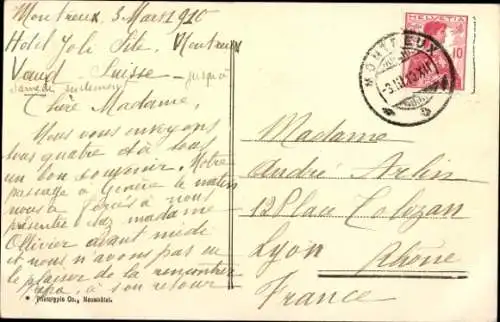 Montreux, 3 Mars 1910
Hotel Joli Site, Montreux
Vaud - Suisse - jusqu'à
Samedi seulement
Chère Madame,
Nous vous envoyons
tous quatre à tous
un bon souvenir. Notre
passage à Genève le matin
nous a forcés à nous
présenter chez madame
Ollivier avant midi
et nous n'avons pas eu
le plaisir de la rencontrer
Papa, à son retour
* Phototypie Co., Neuchâtel.
HELVETIA
10
MONTREUX
-3.III.10.XII
Madame
André Arlin
12 Place Tolozan
Lyon
Rhône
France